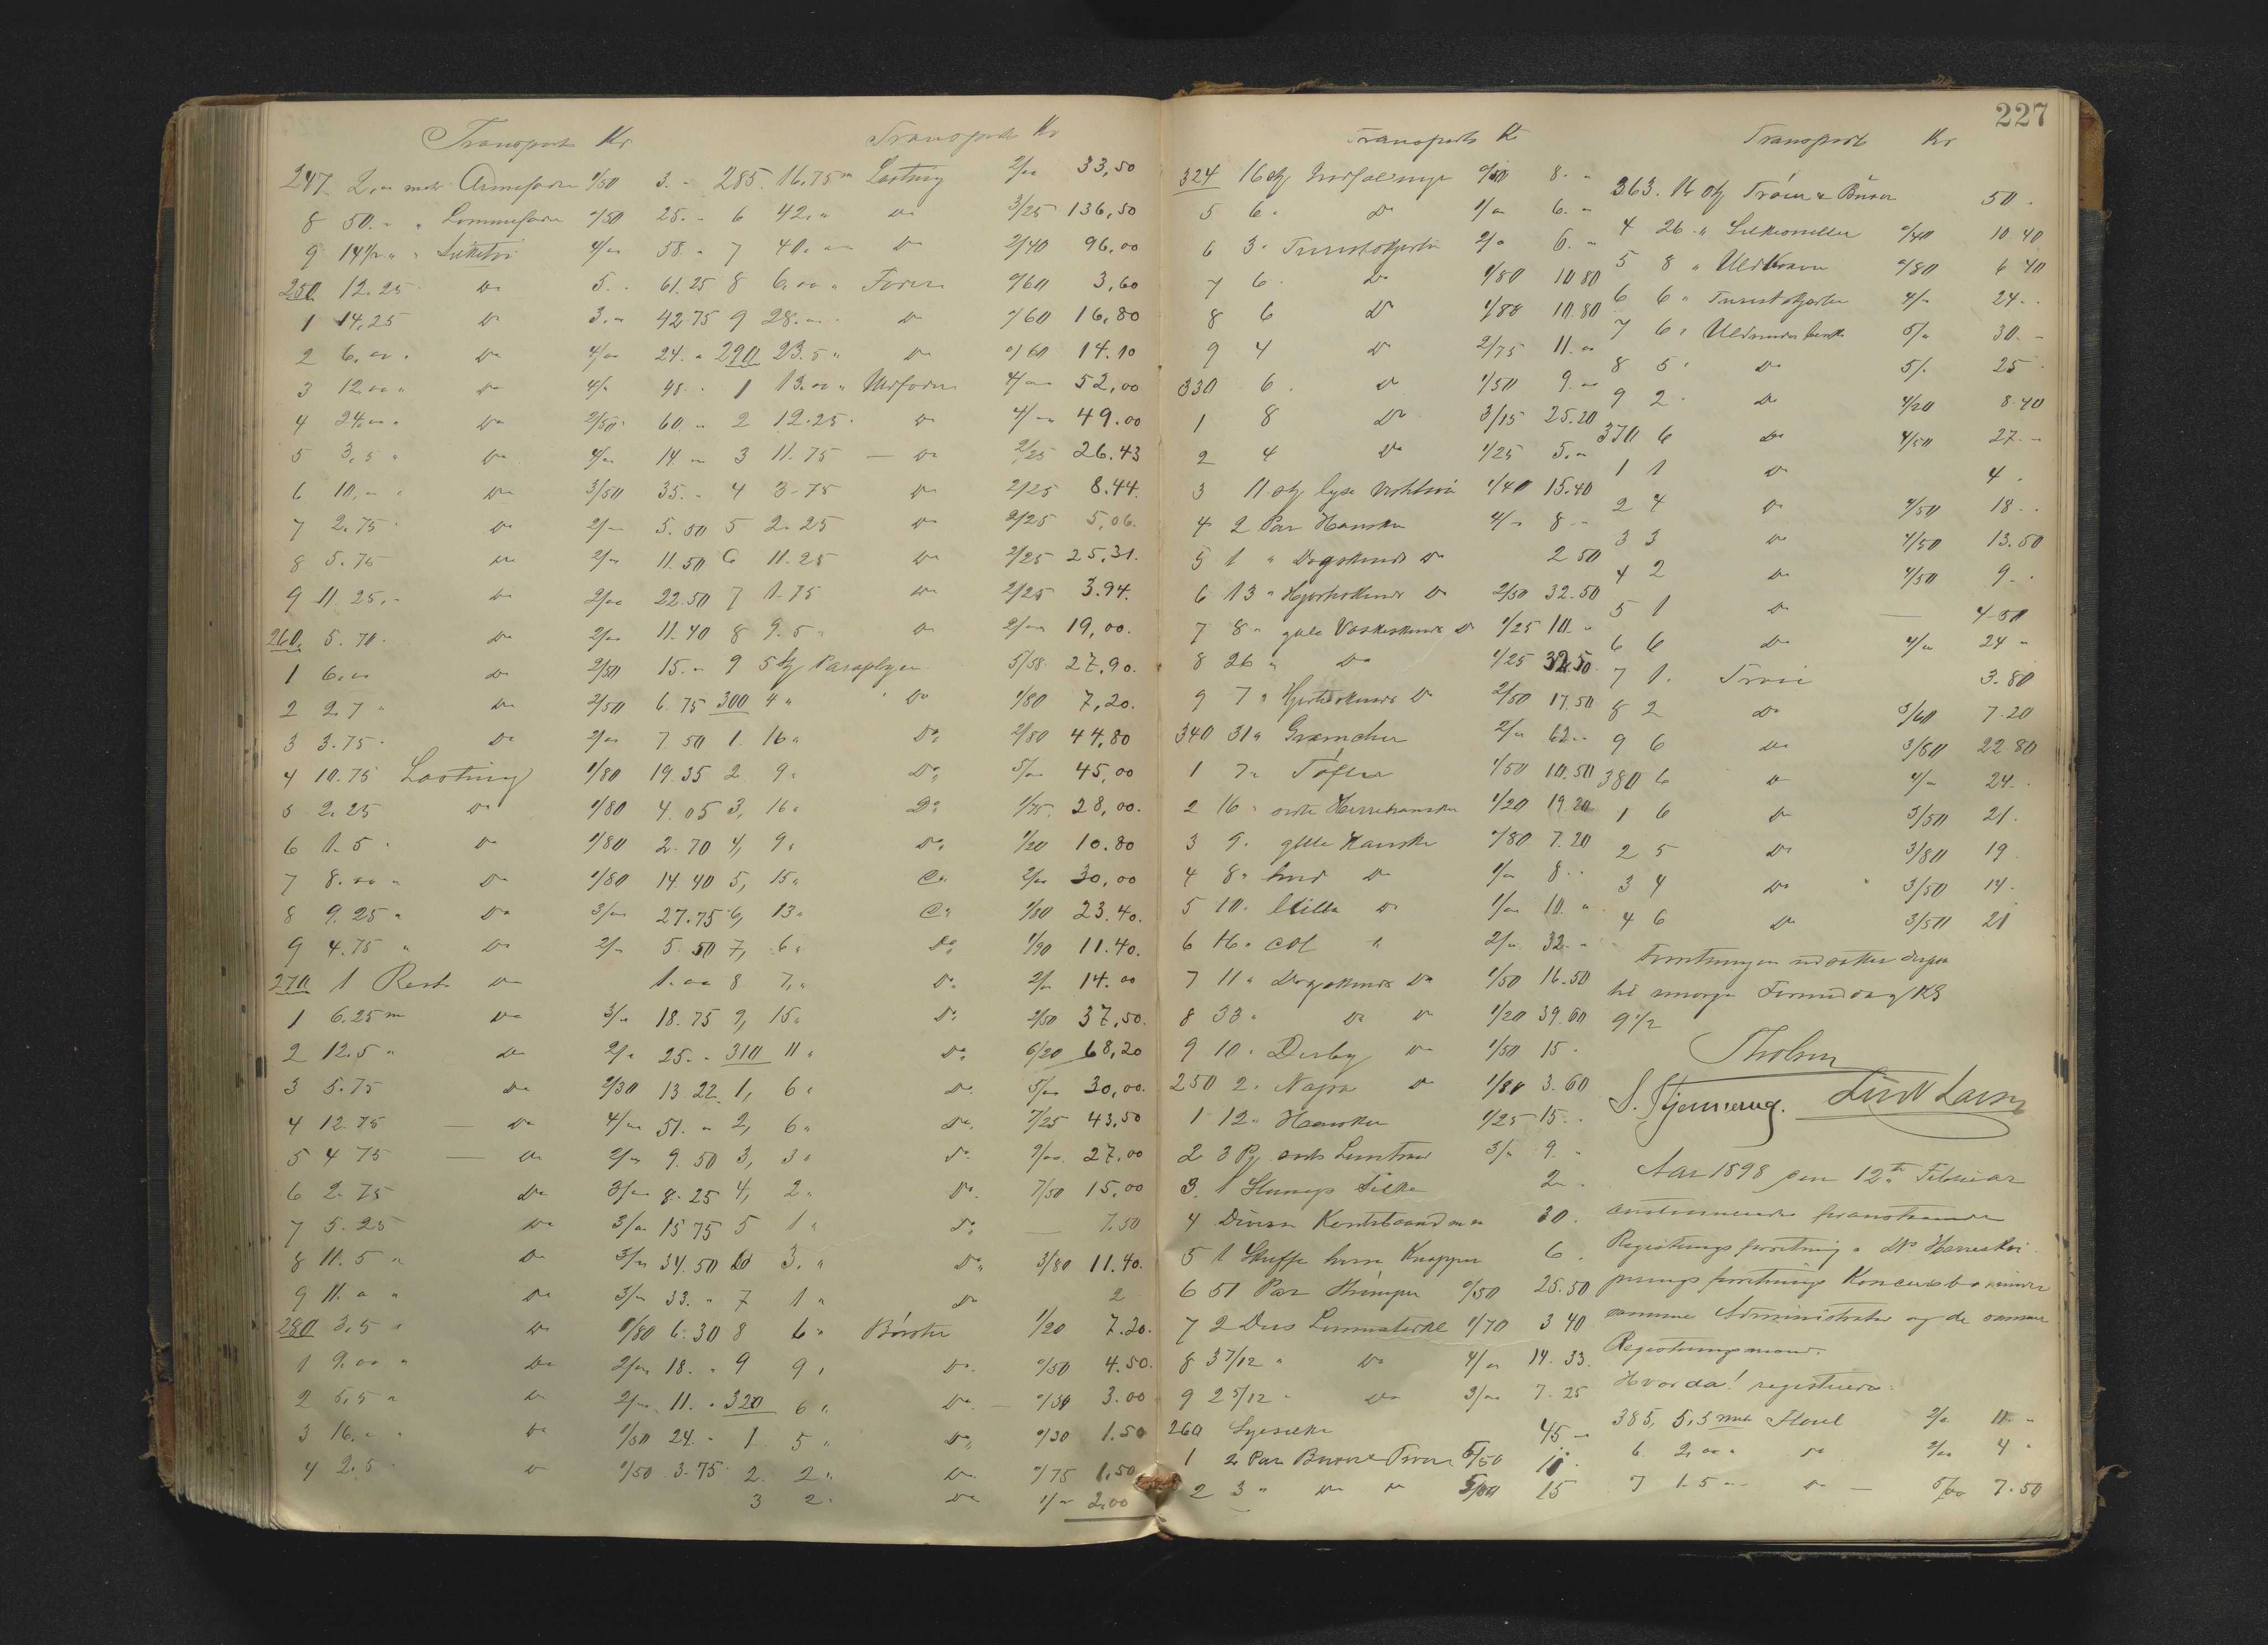 227
Transport Kr
247 2,00 metr Armefoder 1/50 3.-
8 50.- " Lommefoder 0/50 25.-
9 14½ " " Silketöi 4/00 58.-
250 12.25 Do 5.- 61.25
1 14,25 Do 3.- 42.75
2 6,00 Do 4/00 24.-
3 12.00 " Do 4/- 48.-
4 24.00 Do 2/50 60.-
5 3,5 " Do 4/- 14.-
6 10,- " Do 3/50 35.-
7 2.75 Do 2/- 5.50
8 5.75 Do 2/- 11.50
9 11.25,- Do 2/00 22.50
260. 5.70 Do 2/- 11.40
1 6,00 Do 2/50 15.-
2 2.7 " Do 2/50 6.75
3 3.75 Do 2/00 7.50
4 10.75 Lastning 1/80 19.35
5 2.25 Do 1/80 4.05
6 1.5 Do 1/80 2.70
7 8.00 " Do 1/80 14.40
8 9.25 " Do 3/- 27.75
9 4.75 " Do 2/- 5.50
270 1 Rest Do 1.00
1 6.25 m Do 3/- 18.75
2 12.5 " Do 2/- 25.-
3 5.75 Do 2/30 13.22
4 12.75 — Do 4/- 51.-
5 4.75 — Do 2/- 9.50
6 2.75 Do 3/- 8.25
7 5.25 Do 3/- 15.75
8 11.5 " Do 3/- 34.50
9 11.0 " Do 3/- 33.-
280 3,5 " Do 1/80 6.30
1 9.00 " Do 2/- 18.-
2 5,5 " Do 2/- 11.-
3 16.- " Do 1/50 24.-
4 2.5 Do 1/50 3.75
Transport Kr
285. 16.75 m Lastning 2/00 33,50
6 42,- " Do 3/25 136,50
7 40.00 Do 2/40 96,00
8 6,00 " Foder 0/60 3,60
9 28.- Do 0/60 16,80
290 23.5 " Do 0/60 14.10
1 13.00 " Uldfoder 4/- 52,00
2 12.25 Do 4/- 49.00
3 11.75 — Do 2/25 26.43
4 3.75 Do 2/25 8.44
5 2.25 Do 2/25 5,06.
6 11.25 Do 2/25 25,31.
7 1.75 Do 2/25 3.94.
8 9.5 " Do 2/00 19,00.
9 5 stk Paraplyer 5/58 27,90.
300 4 " Do 1/80 7,20.
1. 16 " Do 2/80 44,80
2 9 " Do 5/00 45,00
3, 16 " Do 1/75 28,00.
4, 9 " Do 1/20 10.80
5, 15 " Do 2/00 30,00
6, 13 " Do 1/80 23.40.
7, 6 " Do 1/90 11.40.
8 7, " Do 2/- 14.00
9, 15 " Do 2/50 37,50.
310 11 " Do 6/20 68,20
1, 6 " Do 5/00 30,00.
2, 6 " Do 7/25 43,50
3, 3 " Do 9/00 27,00
4, 2 " Do 7/50 15,00
5 1 " Do — 7.50
6 3. " Do 3/80 11.40.
7 1 " Do 2
8 6 " Börster 1/20 7.20.
9 9 " Do 0/50 4.50.
320 6 " Do — 0/50 3.00
1 5 " Do 0/30 1.50
2. 2 " Do 0/75 1,50
3 2 " Do 1/00 2,00
Transport Kr
324 16 stk 0/50 8.-
5 6 " Do 1/00 6.-
6 3 " Turistskjorter 2/- 6.-
7 6 Do 1/80 10.80
8 6 Do 1/80 10.80
9 4 Do 2/75 11.00
330 6 Do 1/50 9.-
1 8 Do 3/15 25.20
2 4 Do 1/25 5.-
3 11 stk lyse 1/40 15.40
4 2 Par Hansker 4/- 8.-
5 1 " Dogskinds Do 2 50
6 13 " Hjorteskinds Do 2/50 32.50
7 8 " gule Vaskeskinds Do 1/25 10.-
8 26 " Do 1/25 32.50
9 7 " Hjorteskinds Do 2/50 17.50
340 31 " Gramcher 2/- 62.-
1 7 " Töfler 1/50 10.50
2 16 " sorte Herrehansker 1/20 19.20
3 9 " gule Hansker 0/80 7.20
4 8 " hvid Do 1/- 8.-
5 10 " Do 1/00 10.-
6 16 " " 2/- 32.-
7 11 " Dogskinds Do 1/50 16.50
8 33 " Do Do 1/20 39.60
9 10 " Derby Do 1/50 15.
250 2 " Napa Do 1/80 3.60
1 12 " Hansker 1/25 15.-
2 3 Pk sorte 3/- 9.-
3. 1 Silke 2.-
4 Diverse Kantebaand 30.
5 1 Skuffe Knapper 6.
6 51 Par Strömper 0/50 25.50
7 2 Dus 1/70 3 40
8 3 7/12 " Do 4/00 14.33.
9 2 5/12 " Do 3/00 7.25
260 Sysilke 45 -
1 2 Par Buxer & Tröier 5/50 11.
2 3 " Do Do 5/00 15
Transport Kr
363. 16 stk Tröier & Buxer 50.
4 26 " 0/40 10 40
5 8 " 0/80 6 40
6 6 " Turistskjorter 4/- 24.-
7 6 " 5/- 30.-
8 5 " Do 5/. 25
9 2 Do 4/20 8.40
370 6 Do 4/50 27.-
1 1 Do 4.
2 4 Do 4/50 18..
3 3 Do 4/50 13.50
4 2 Do 4/50 9.-
5 1 Do — 4.50
6 6 Do 4/00 24 "
7 1. Tröie 3.80
8 2 Do 3/60 7.20
9 6 Do 3/80 22 80
380 6 Do 4/- 24.
1 6 Do 3/50 21.
2 5 Do 3/80 19
3 4 Do 3/50 14.
4 6 Do 3/50 21
Forretningen udsattes derpaa
til imorgen Formiddag Kl
9½
S. Stjernerug.
Aar 1898 den 12te Februar
Registreringsforretning i
Konkursbo
samme Administrator og de samme
Registreringsmænd.
Hvorda! registreres:
385, 5,5 metr Flouel 2/- 11.-
6. 2,00 " Do 2/00 4 "
7 1.5 - Do — 5/00 7.50